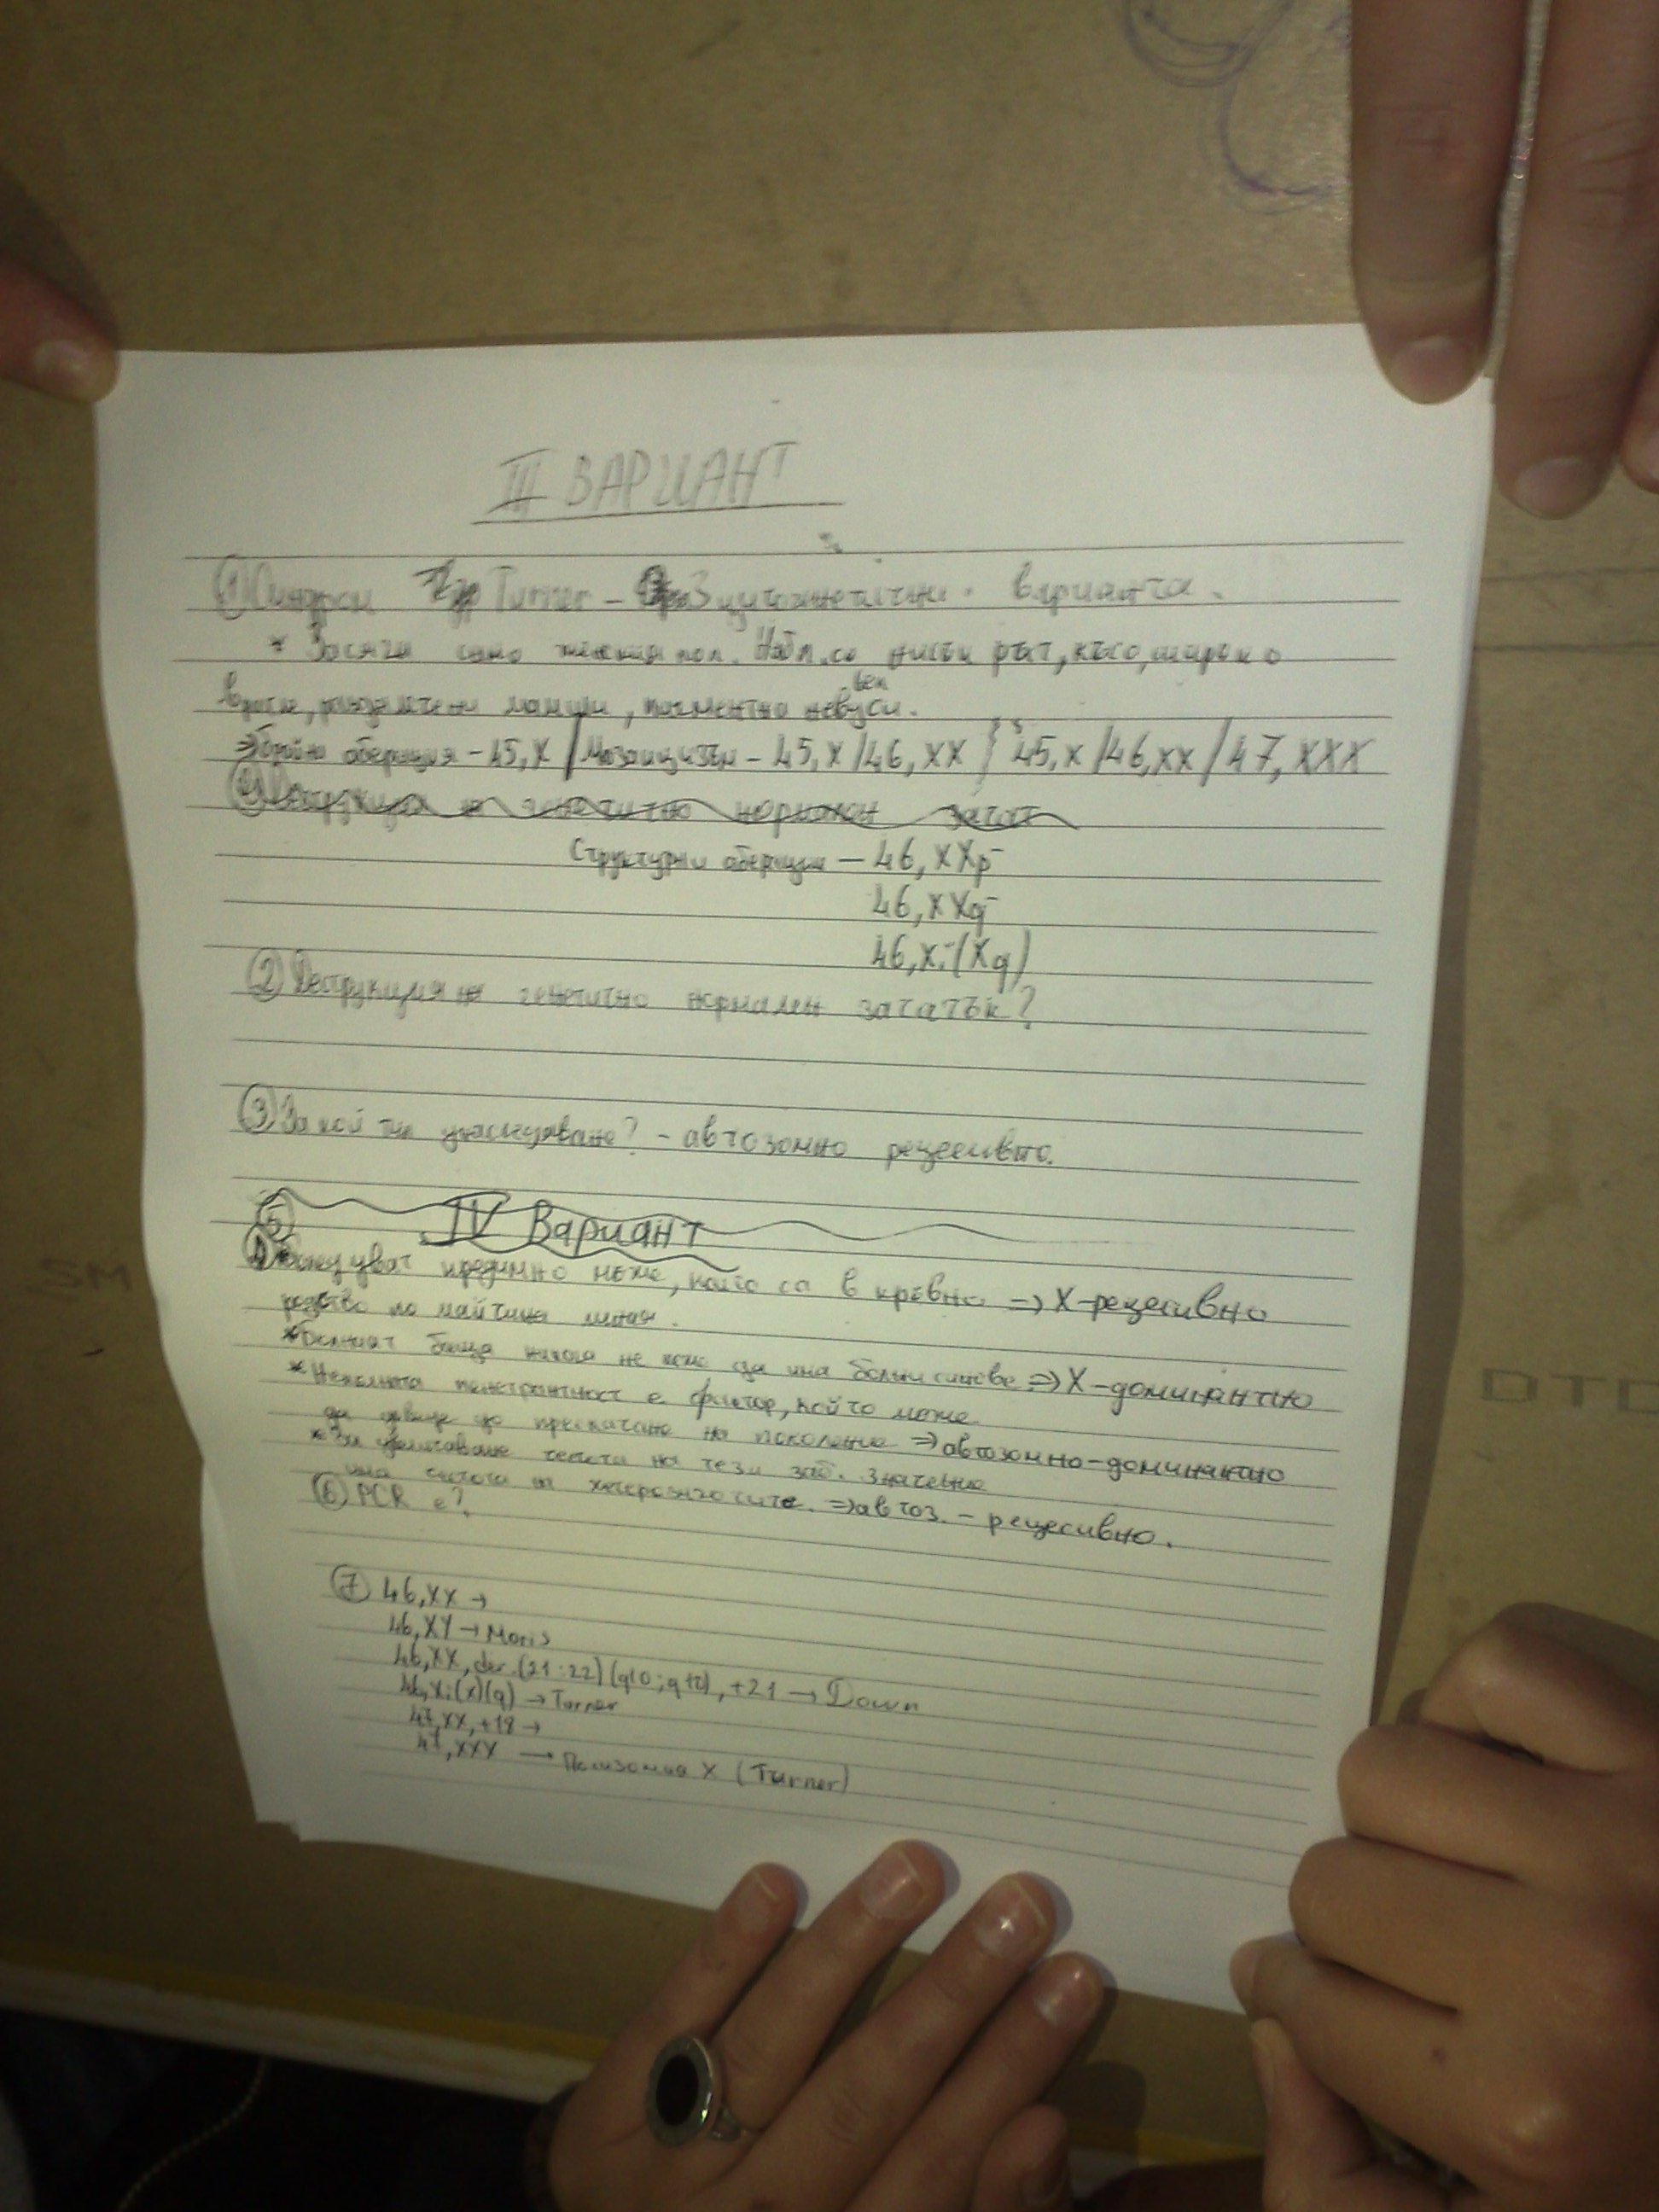 III ВАРИАНТ
① Синдром Turner - 3 цитогенетични варианта.
* Засяга само женския пол. Набл. се нисък ръст, късо, широко
вратле, раздалечени мамили, пигментно невуси.
⇒ Бройна аберация - 45,X / Мозаицизъм - 45,X/46,XX 45,X/46,XX/47,XXX
генетично нормален зачат
Структурни аберации — 46,XXp-
46,XXq-
46,Xi(Xq)
② Деструкция на генетично нормален зачатък?
③ За кой тип унаследяване? - автозомно рецесивно.
⑤ IV Вариант
Боледуват предимно мъже, които са в кръвно ⇒ X-рецесивно
родство по майчина линия.
* Болният баща никога не може да има болни синове ⇒ X-доминантно
* Непълната пенетрантност е фактор, който може
да доведе до прескачане на поколение ⇒ автозомно-доминантно
* За честота на тези заб. значение
има ситога на хетерозиготите. ⇒ автоз. - рецесивно.
⑥ PCR е?
⑦ 46,XX →
46,XY → Moris
46,XX, der.(21:22)(q10;q10), +21 → Down
46,Xi(x)(q) → Turner
47,XX,+18 →
47,XXX → Полизомия X (Turner)
SM
DTD